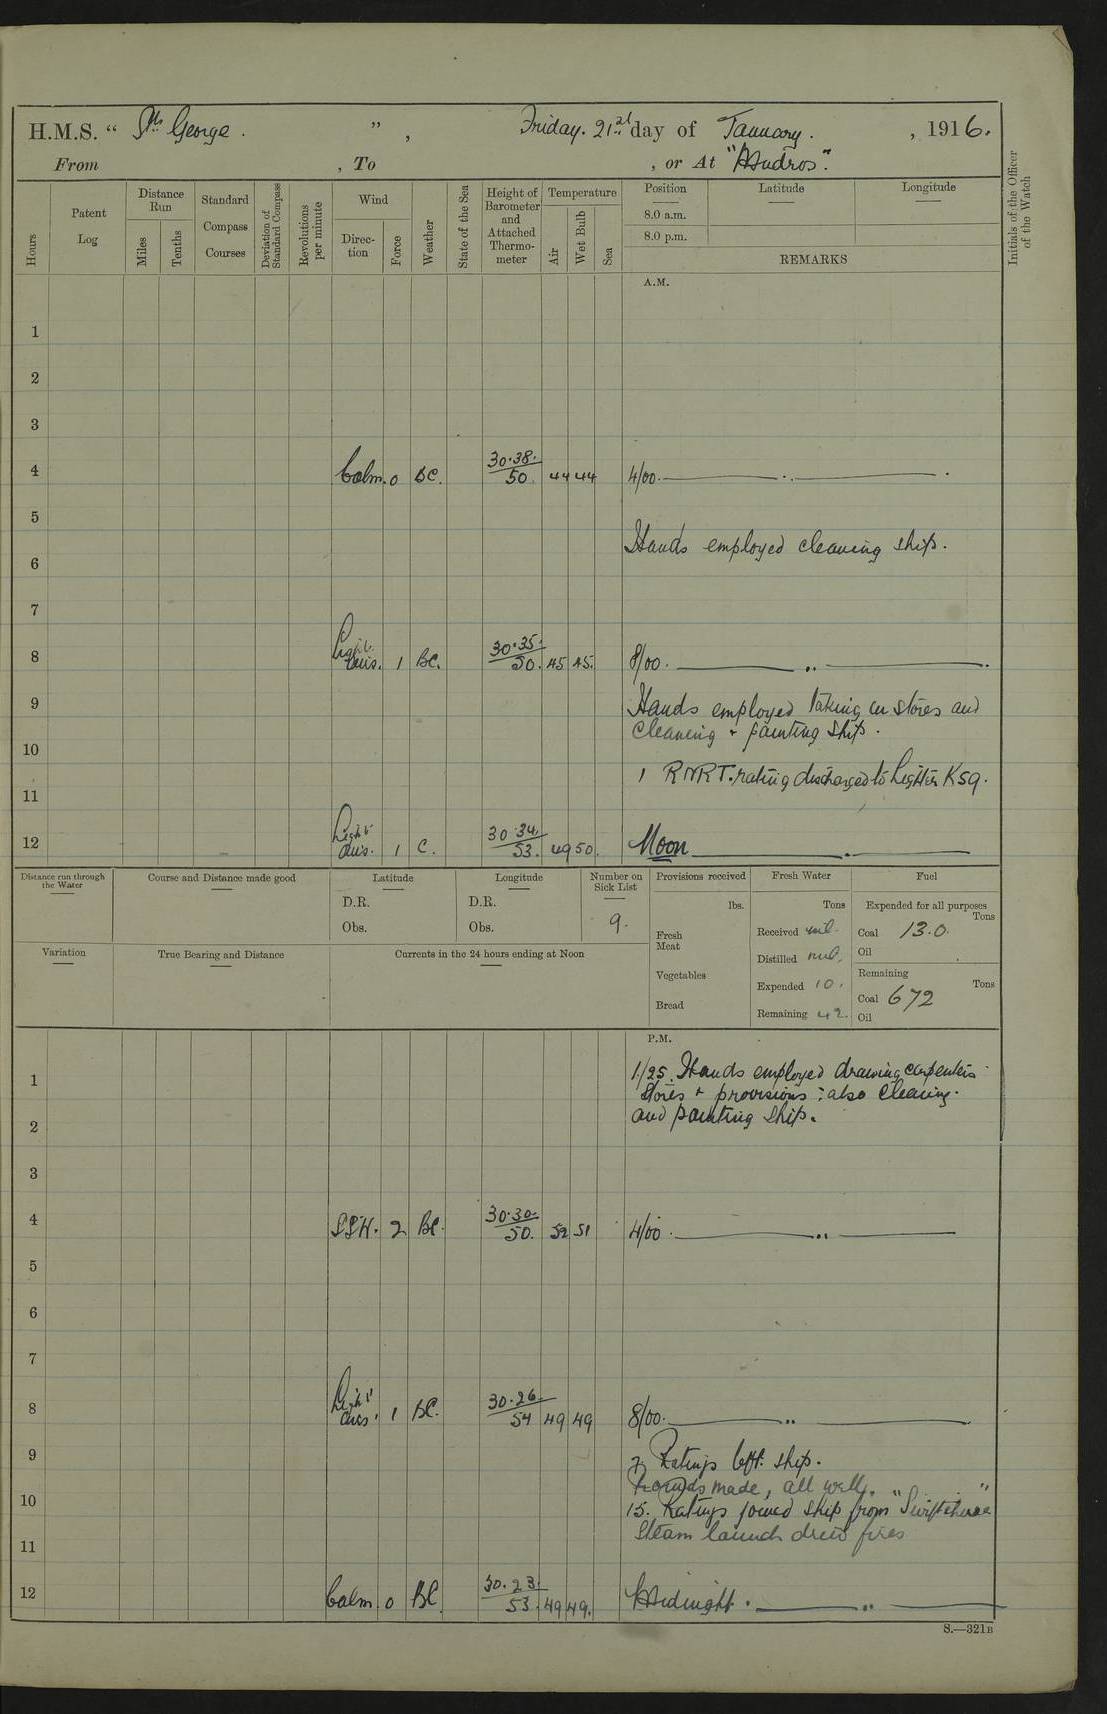 H.M.S. “ St George. ” , Friday. 21st day of January. , 1916.
From , To , or At "Mudros".
Hours
Patent Log
Distance Run
Miles
Tenths
Standard Compass Courses
Deviation of Standard Compass
Revolutions per minute
Wind
Direction
Force
Weather
State of the Sea
Height of Barometer and Attached Thermometer
Temperature
Air
Wet Bulb
Sea
Position
8.0 a.m.
8.0 p.m.
Latitude
Longitude
REMARKS
Initials of the Officer of the Watch
A.M.
1
2
3
4 Calm. 0 BC. 30.38. 50 44 44 4/00.
5
Hands employed cleaning ship.
6
7
8 Light airs. 1 BC. 30.35. 50. 45 45. 8/00.
9 Hands employed taking in stores and
cleaning + painting ship.
10
1 RNRT. rating discharged to Lighter K59.
11
12 Light airs. 1 C. 30.34. 53. 49 50. Noon
Distance run through the Water
Course and Distance made good
Latitude
D.R.
Obs.
Longitude
D.R.
Obs.
Number on Sick List
9.
Provisions received
lbs.
Fresh Meat
Vegetables
Bread
Fresh Water
Tons
Received nil.
Distilled nil.
Expended 10.
Remaining 42.
Fuel
Expended for all purposes
Tons
Coal 13.0.
Oil
Remaining
Tons
Coal 672
Oil
Variation
True Bearing and Distance
Currents in the 24 hours ending at Noon
P.M.
1 1/25. Hands employed drawing carpenters
stores + provisions : also cleaning.
and painting ship.
2
3
4 SSW. 2 BC. 30.30. 50. 52 51 4/00.
5
6
7
8 Light airs. 1 BC. 30.26. 54 49 49 8/00.
9 Ratings left ship.
Rounds made, all well.
10 15. Ratings joined ship from "Swiftsure"
Steam launch drew fires
11
12 Calm. 0 BC. 30.23. 53. 49 49. Midnight.
S.—321B